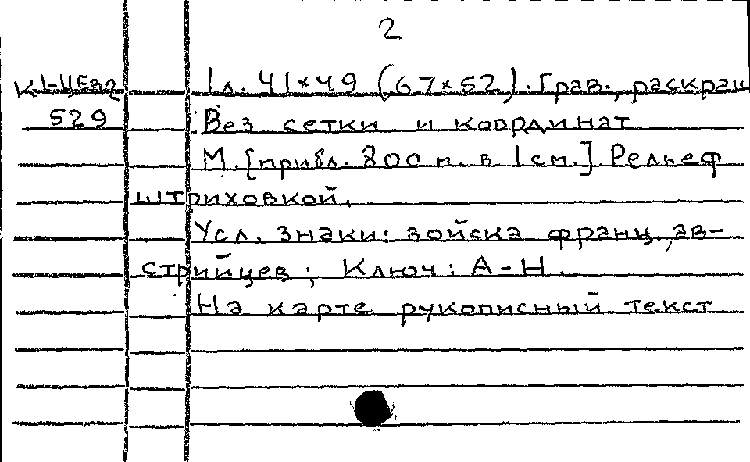 2
1л. 41×49 (67×52). Грав., раскраш
529 Без сетки и координат
М. [прибл. 800 м. в 1 см.] Рельеф
штриховкой.
Усл. знаки: войска франц., ав-
стрийцев; Ключ: А-Н.
На карте рукописный текст